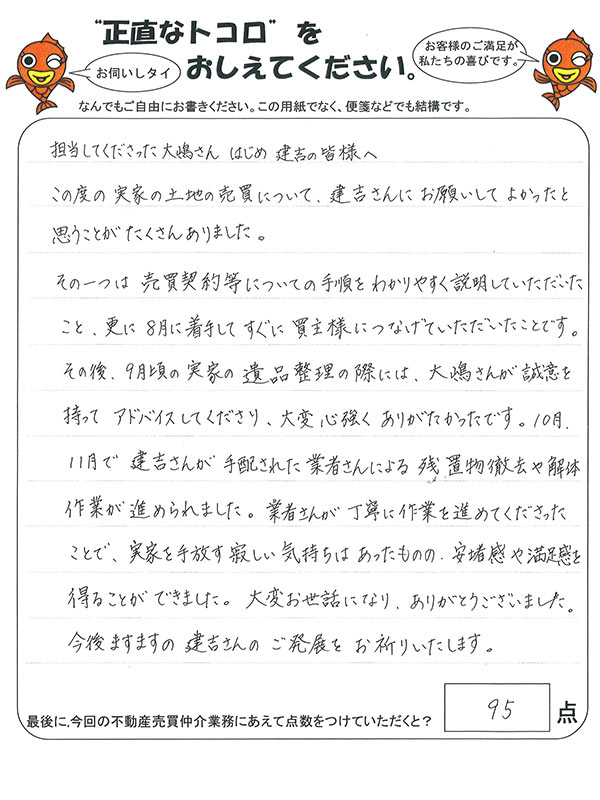 "正直なトコロ"を
おしえてください。
お伺いしタイ
お客様のご満足が
私たちの喜びです。
なんでもご自由にお書きください。この用紙でなく、便箋などでも結構です。
担当してくださった大嶋さん はじめ 建吉の皆様へ
この度の実家の土地の売買について、建吉さんにお願いしてよかったと
思うことがたくさんありました。
その一つは 売買契約等についての手順をわかりやすく説明していただいた
こと、更に8月に着手してすぐに買主様につなげていただいたことです。
その後、9月頃の実家の遺品整理の際には、大嶋さんが誠意を
持って アドバイスしてくださり、大変心強くありがたかったです。10月、
11月で 建吉さんが手配された業者さんによる 残置物徹去や解体
作業が進められました。業者さんが丁寧に作業を進めてくださった
ことで、実家を手放す寂しい気持ちはあったものの、安堵感や満足感を
得ることができました。大変お世話になり、ありがとうございました。
今後ますますの 建吉さんの ご発展を お祈りいたします。
最後に、今回の不動産売買仲介業務にあえて点数をつけていただくと? 95 点